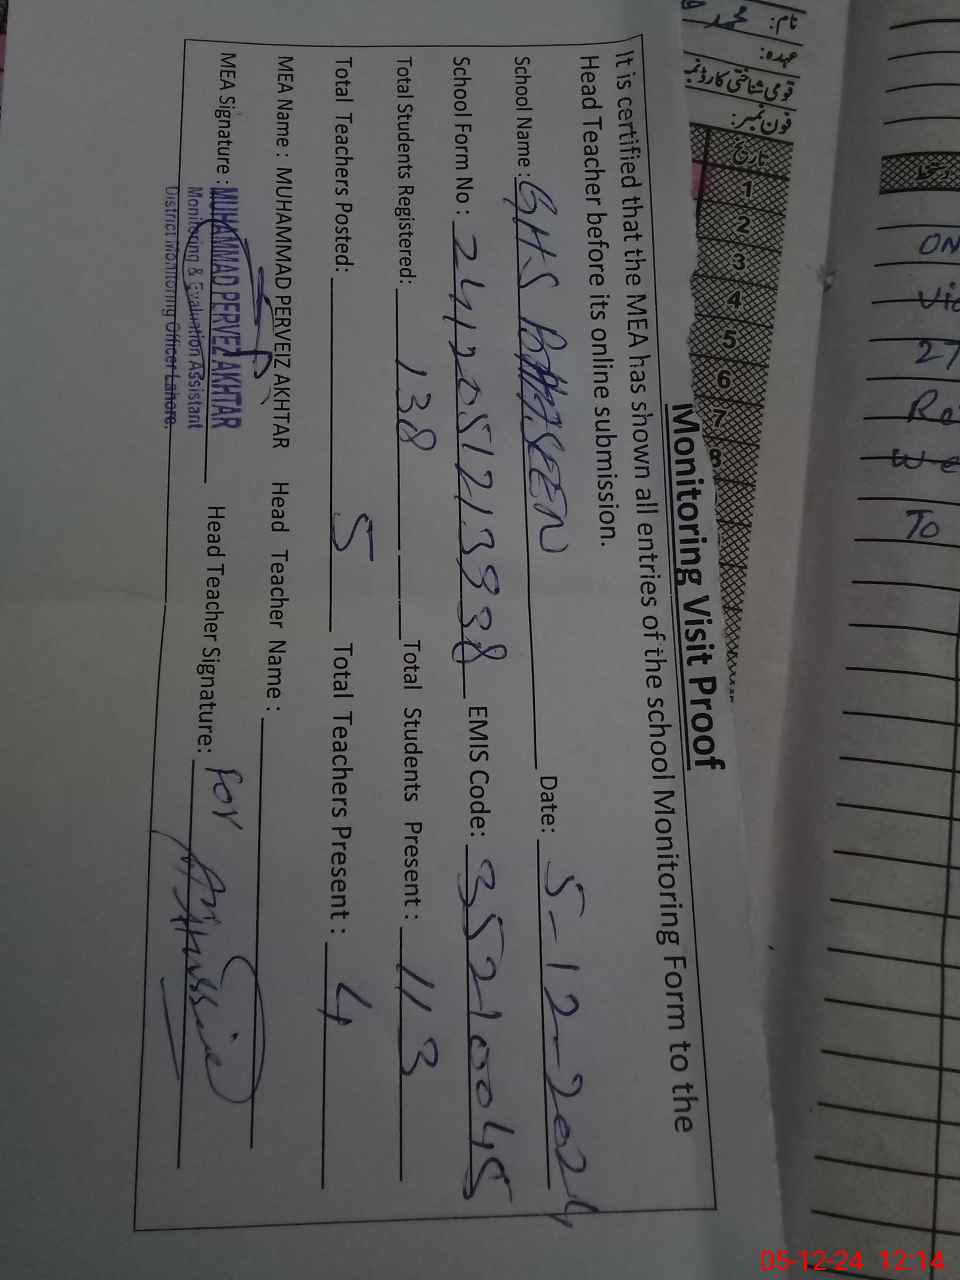 Monitoring Visit Proof
It is certified that the MEA has shown all entries of the school Monitoring Form to the
Head Teacher before its online submission.
School Name : GHS BHASEEN Date: 5-12-2024
School Form No : 2412051213938 EMIS Code: 35210045
Total Students Registered: 138 Total Students Present : 113
Total Teachers Posted: 5 Total Teachers Present : 4
MEA Name : MUHAMMAD PERVEIZ AKHTAR Head Teacher Name :
MEA Signature : MUHAMMAD PERVEZ AKHTAR Head Teacher Signature: For
Monitoring & Evaluation Assistant
District Monitoring Officer Lahore.
نام:
عہدہ:
قومی شناختی کارڈ نمبر
فون نمبر:
تاریخ
1
2
3
4
5
6
7
8
ON
27
To
05-12-24 12:14